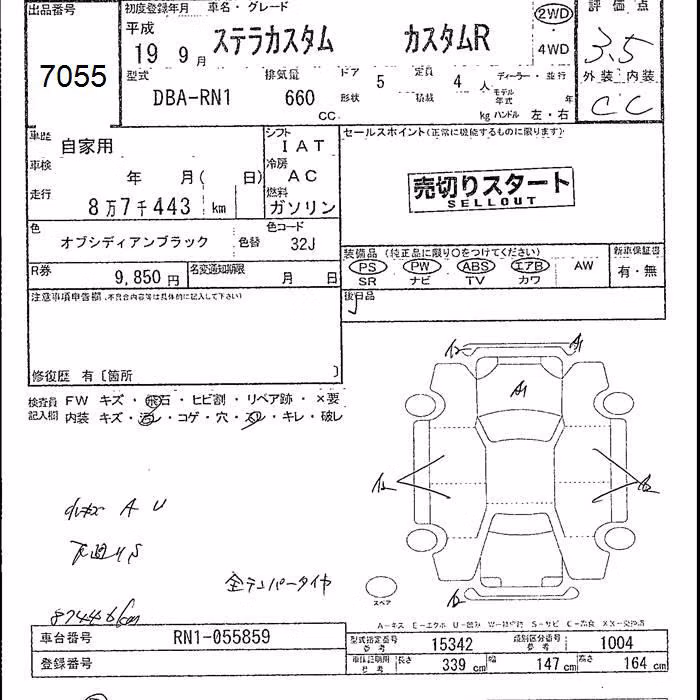 出品番号 初度登録年月 車名・グレード 2WD 評価点
7055 平成 19 9月 ステラカスタム カスタムR 4WD 3.5
型式 排気量 ドア 5 定員 4人 ディーラー・並行 外装 内装
DBA-RN1 660 CC 形状 積載 kg モデル年式 年 ハンドル 左・右 C C
車歴 自家用 シフト IAT セールスポイント(正常に機能するものに限ります)
車検 年 月( 日) 冷房 AC 売切りスタート
SELLOUT
走行 8万7千443 km 燃料 ガソリン
色 オブシディアンブラック 色替 色コード 32J
装備品 (純正品に限り〇をつけてください) 新車保証書
R券 9,850円 名変通知期限 月 日 PS PW ABS エアB AW 有・無
SR ナビ TV カワ
注意事項申告欄(不具合内容等は具体的に記入して下さい) 後日品
修復歴 有〔箇所 〕
検査員 FW キズ・飛石・ヒビ割・リペア跡・×要
記入欄 内装 キズ・汚レ・コゲ・穴・スレ・キレ・破レ
A1
A1
A U
全テンパータイヤ
スペア
87446km
A-キズ E-エクボ U-凹み W-補修跡 S-サビ C-腐食 XX-交換済
車台番号 RN1-055859 型式指定番号 参考 15342 類別区分番号 参考 1004
登録番号 車検証期用 参考 長さ 339 cm 幅 147 cm 高さ 164 cm